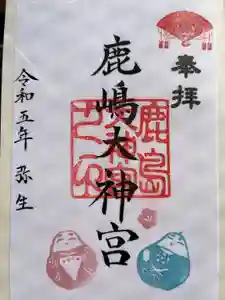 奉拝
鹿嶋大神宮
令和五年 弥生